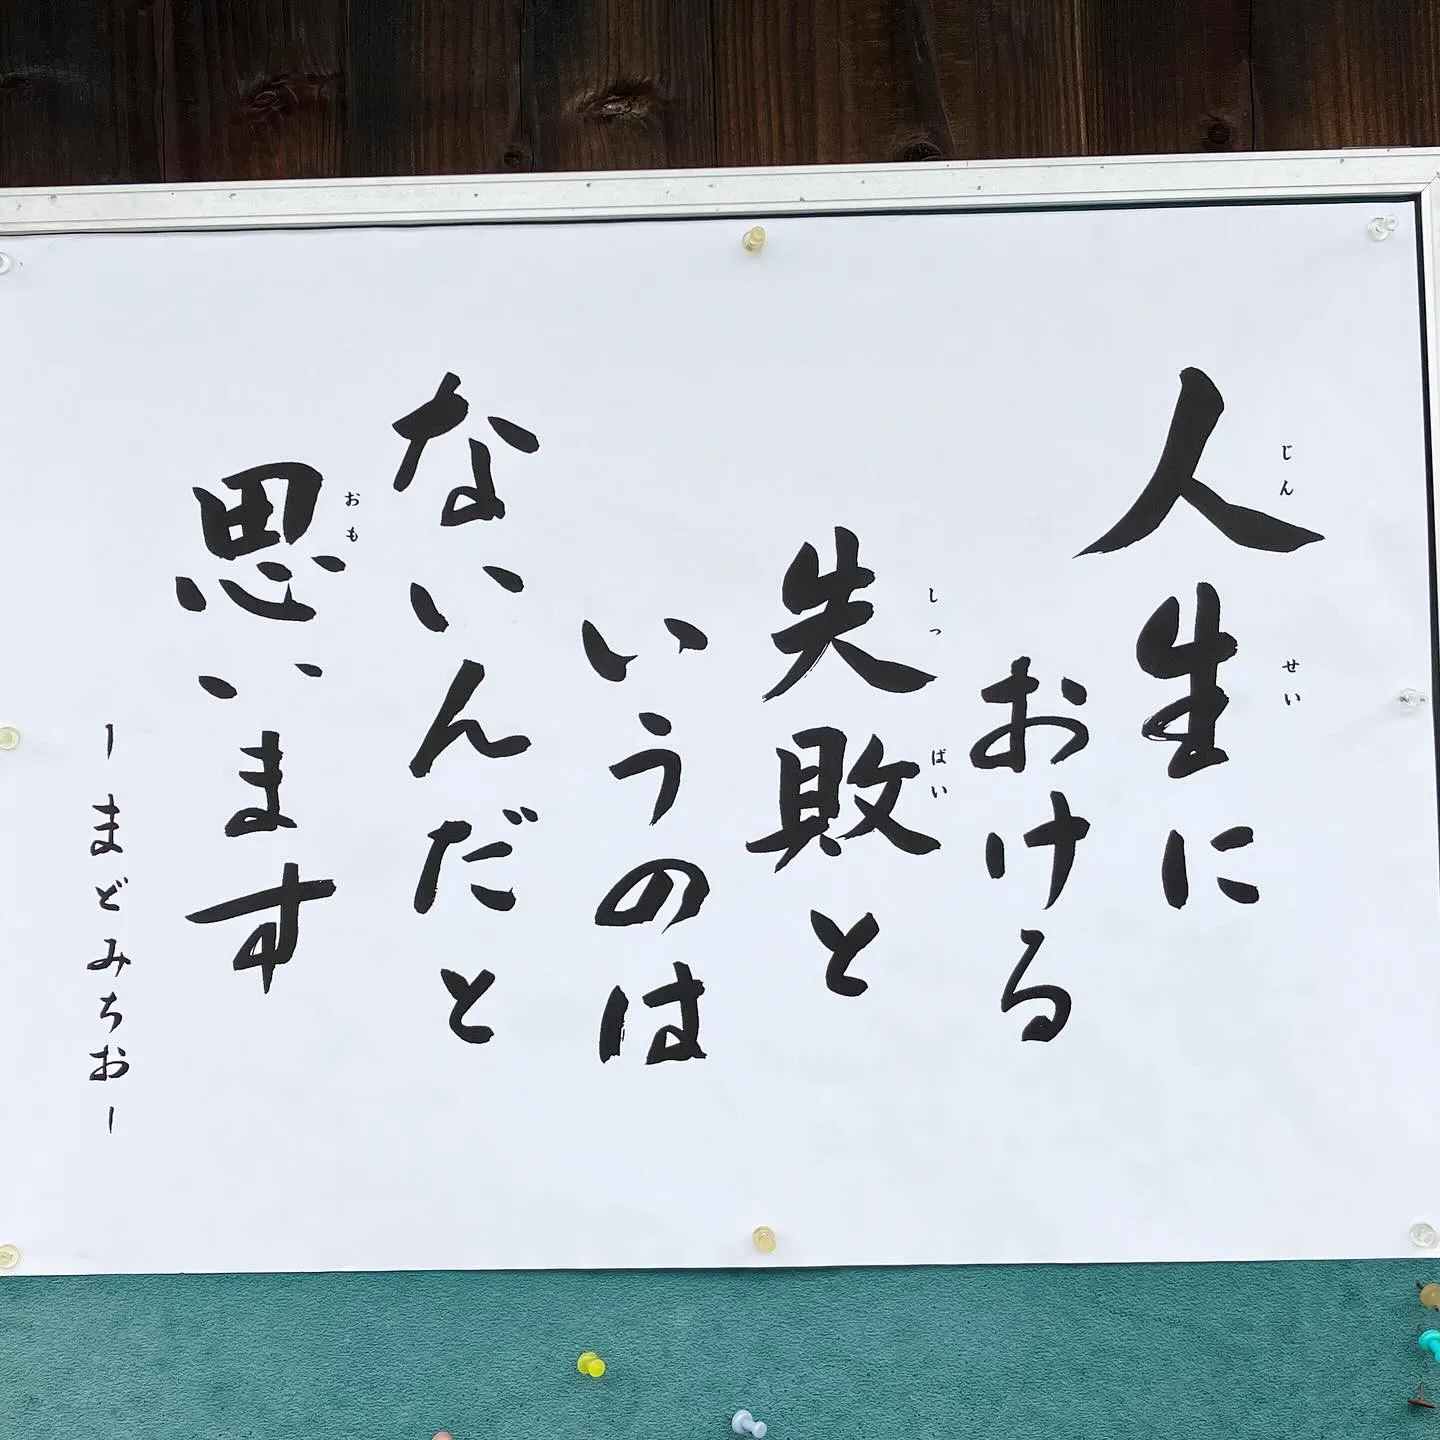 人生に
おける
失敗と
いうのは
ないんだと
思います
ーまどみちおー
じん
せい
しっ
ぱい
おも